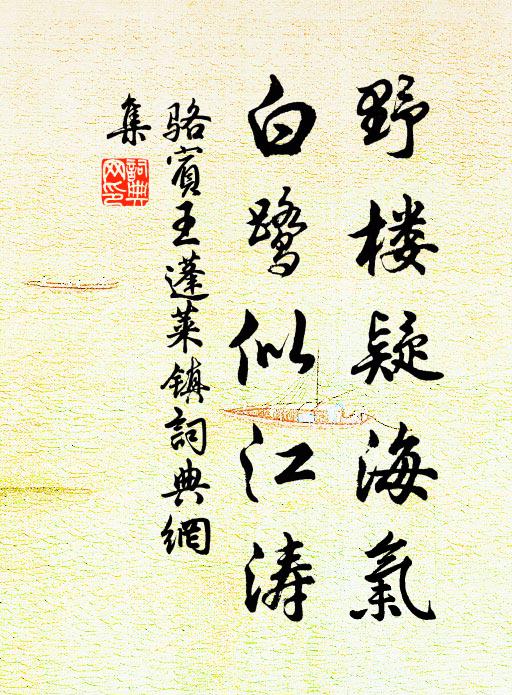 野楼疑海氣
白鹭似江涛
骆賓王蓬莱镇詞典網
集
詞典
网印